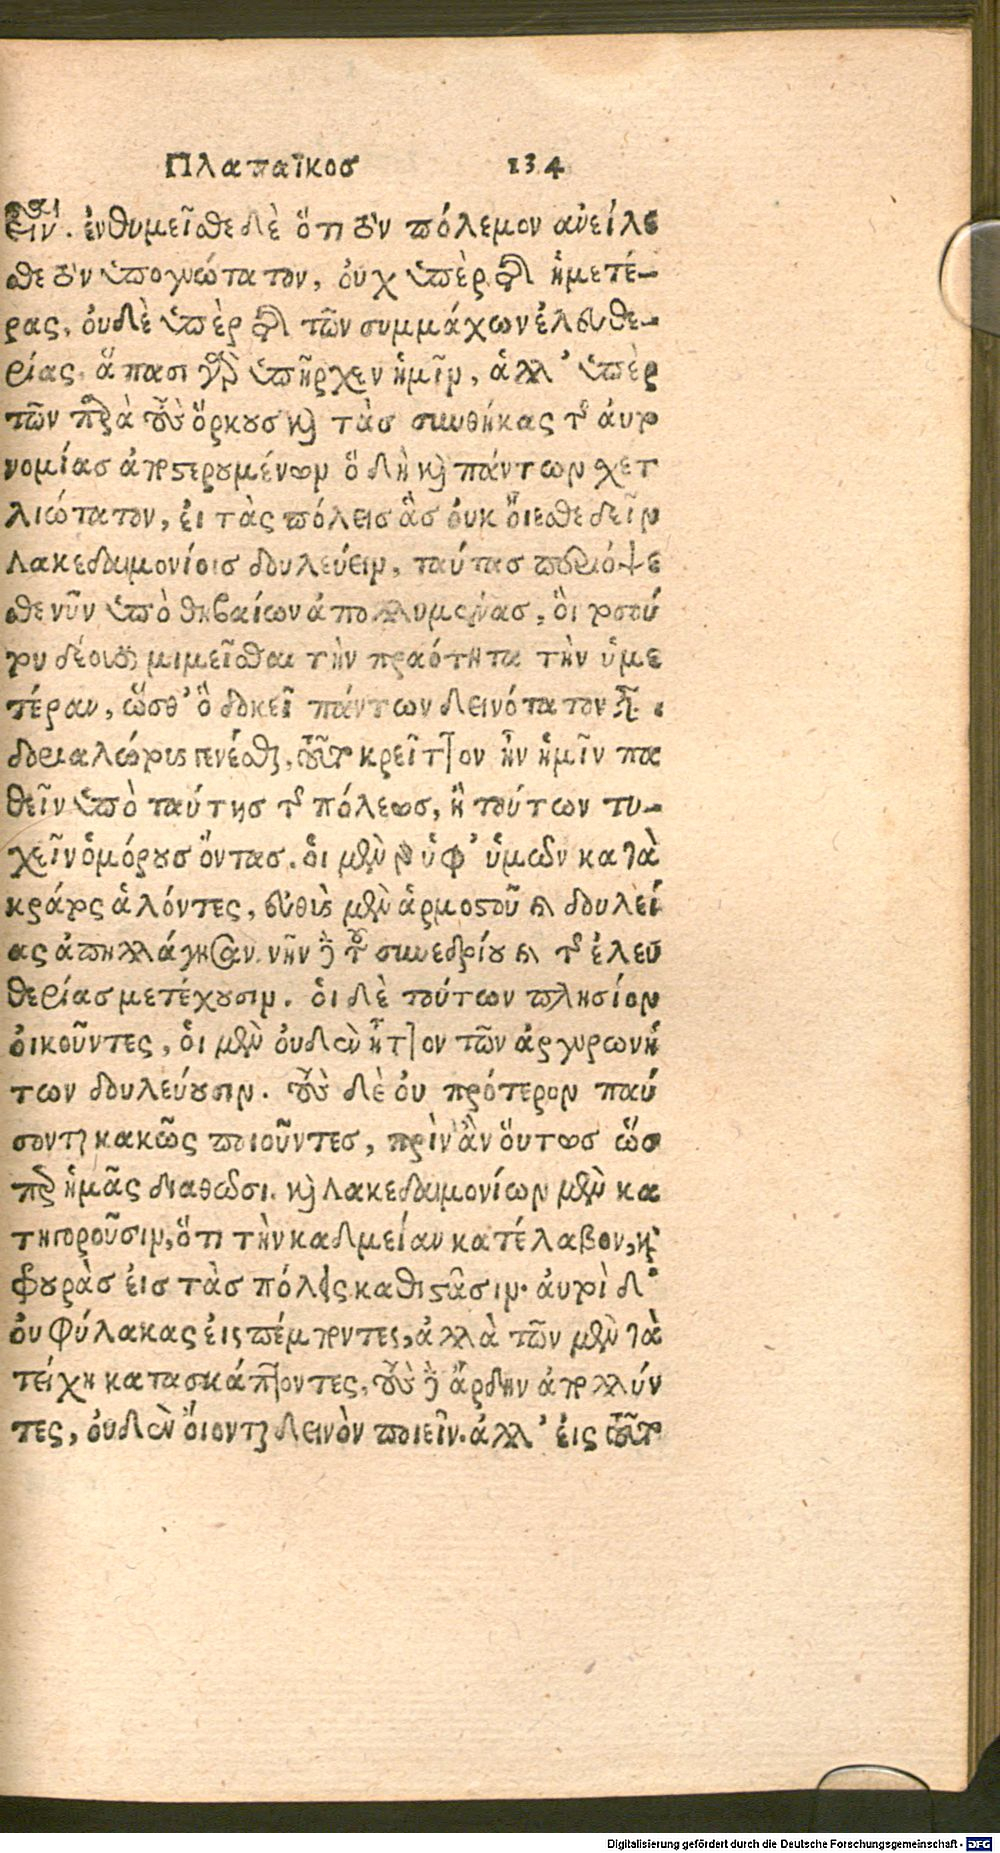 Πλαταϊκοσ 134
ἐστιν. ἐνθυμεῖσθε δὲ ὅτι τὸν πόλεμον ἀνείλε
σθε τὸν ὑπογυώτατον, οὐχ ὑπὲρ τῆς ἡμετέ-
ρας, οὐδὲ ὑπὲρ τῆς τῶν συμμάχων ἐλευθε-
ρίας, ἅπασι γὰρ ὑπῆρχεν ἡμῖν, ἀλλ' ὑπὲρ
τῶν παρὰ τοὺς ὅρκους καὶ τὰσ συνθήκας τῆς αὐτο
νομίασ ἀποστερουμένων ὃ δὴ καὶ πάντων σχετ
λιώτατον, εἰ τὰς πόλεισ ἃσ οὐκ ᾤεσθε δεῖν
Λακεδαιμονίοισ δουλεύειν, ταύτασ περιόψε
σθε νῦν ὑπὸ θηβαίων ἀπολλυμένασ, οἳ τοσού
του δέουσι μιμεῖσθαι τὴν πραότητα τὴν ὑμε
τέραν, ὥσθ' ὃ δοκεῖ πάντων δεινότατον εἶναι
δοριαλώτους γενέσθαι, τοῦτο κρεῖττον ἦν ἡμῖν πα
θεῖν ὑπὸ ταύτησ τῆς πόλεως, ἢ τούτων τυ-
χεῖν ὁμόρους ὄντασ. οἱ μὲν γὰρ ὑφ' ὑμῶν κατὰ
κράτος ἁλόντες, εὐθὺς μὲν ἁρμοστοῦ καὶ δουλεί
ας ἀπηλλάγησαν. νῦν δὲ τοῦ συνεδρίου καὶ τῆς ἐλευ
θερίας μετέχουσιν. οἱ δὲ τούτων πλησίον
οἰκοῦντες, οἱ μὲν οὐδὲν ἧττον τῶν ἀργυρωνή
των δουλεύουσιν. τοὺς δὲ οὐ πρότερον παύ
σονται κακῶς ποιοῦντεσ, πρὶν ἂν οὕτως ὥσ
περ ἡμᾶς διαθῶσι. καὶ Λακεδαιμονίων μὲν κα
τηγοροῦσιν, ὅτι τὴν καδμείαν κατέλαβον, καὶ
φρουρὰσ εἰσ τὰσ πόλεις καθιστᾶσιν. αὐτοὶ δ'
οὐ φύλακας εἰςπέμποντες, ἀλλὰ τῶν μὲν τὰ
τείχη κατασκάπτοντες, τοὺς δὲ ἄρδην ἀπολλύν
τες, οὐδὲν οἴονται δεινὸν ποιεῖν. ἀλλ' εἰς τοῦτο
Digitalisierung gefördert durch die Deutsche Forschungsgemeinschaft - DFG